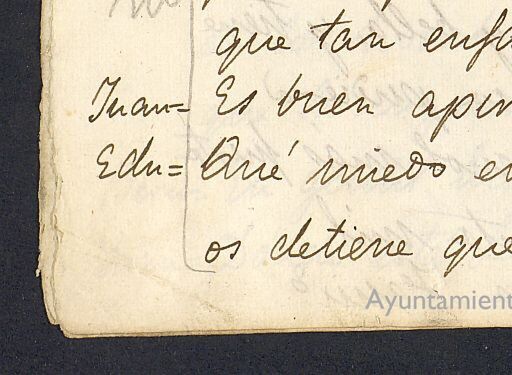 que tan enfa
Juan= Es buen aper
Edu= Qué miedo en
os detiene que
Ayuntamient